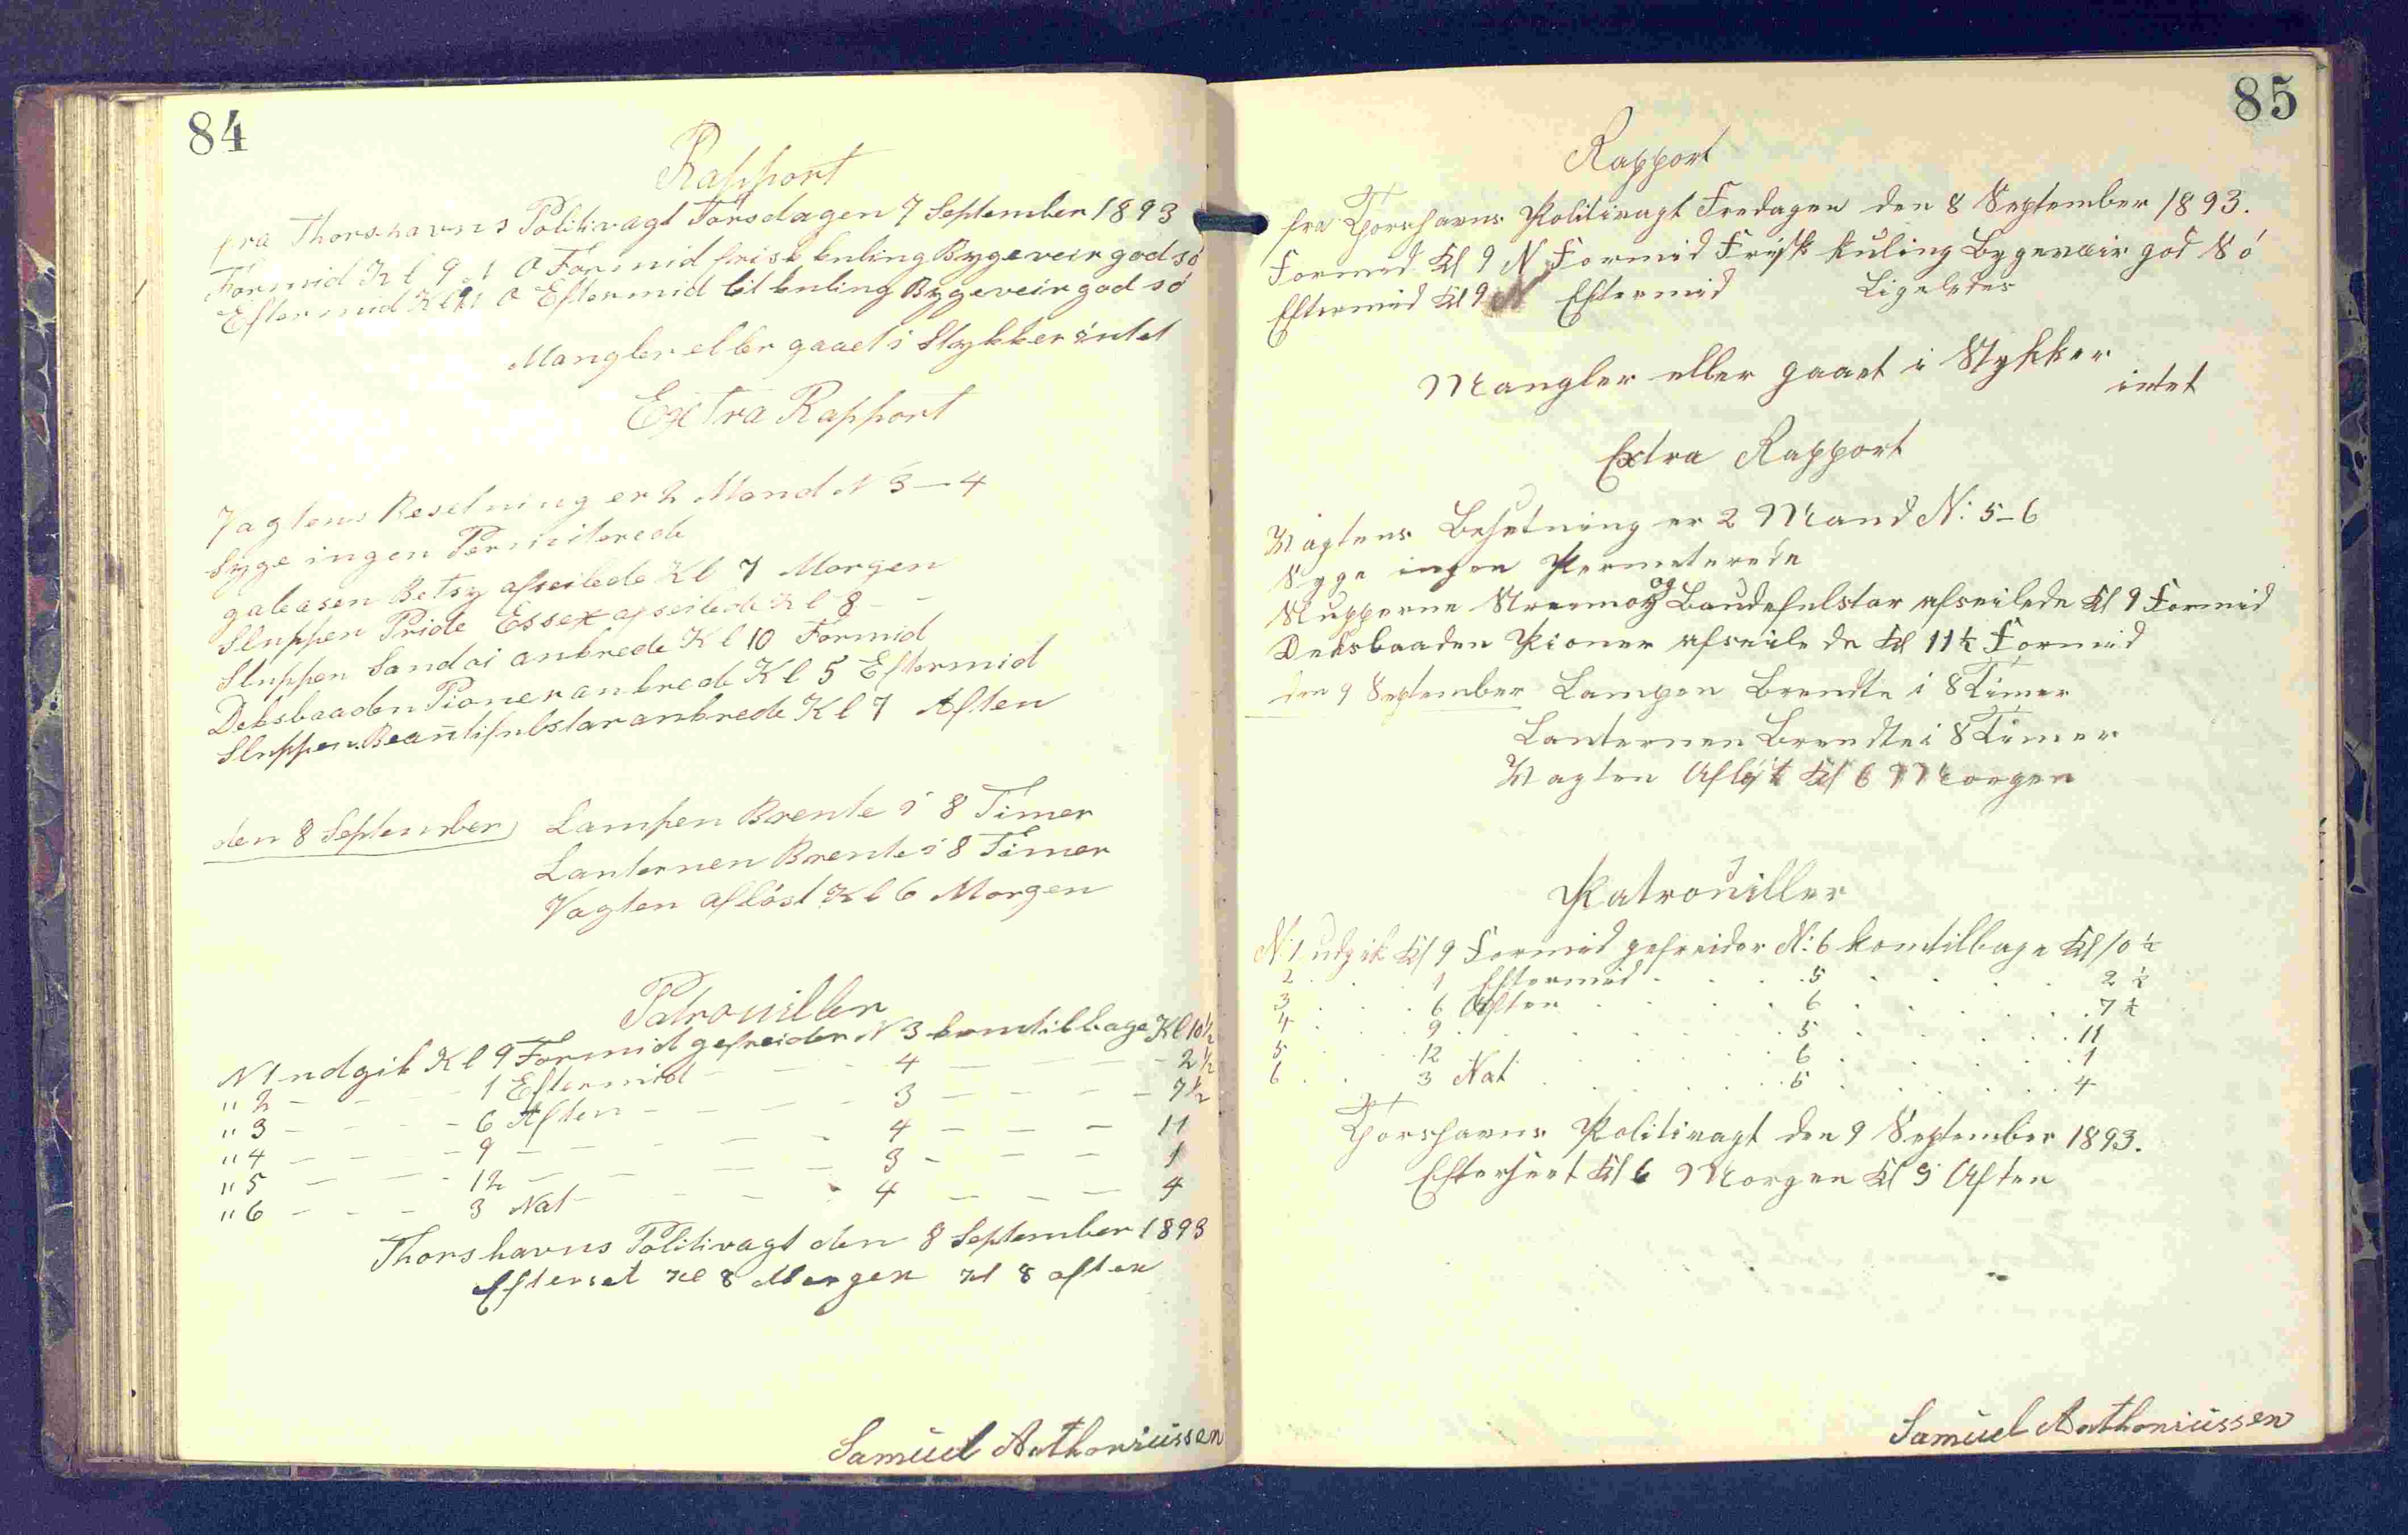 84
Rapport
fra Thorshavns Politivagt Torsdagen 7 September 1893
Formid Kl 9 O Formid frisk kuling Bygeveir god só
Eftermid Kl 9 O Eftermid lit kuling Bygeveir god só
Mangler eller gaaet i Stykker intet
Extra Rapport
Vagtens Besetning er 2 Mand N 3 — 4
Syge ingen Permiterede
galeasen Betsy afseilede Kl 7 Morgen
Sluppen Pride Essex afseilede Kl 8 – –
Sluppen Sandoi ankrede Kl 10 Formid
Deksbaaden Pioner ankrede Kl 5 Eftermid
Sluppen Beautifulstar ankrede Kl 7 Aften
den 8 September Lampen Brente i 8 Timer
Lanternen Brente i 8 Timer
Vagten aflöst Kl 6 Morgen
Patrouiller
N 1 udgik Kl 9 Formid gefreider N 3 komtilbage Kl 10½
" 2 – – – 1 Eftermid – – – 4 – – – 2½
" 3 – – – 6 Aften – – – 3 – – – 7½
" 4 – – – 9 – – – 4 – – – 11
" 5 – – – 12 – – – 3 – – – 1
" 6 – – – 3 Nat – – – 4 – – – 4
Thorshavns Politivagt den 8 September 1893
Efterset Kl 8 Morgen Kl 8 aften
Samuel Anthoniussen
85
Rapport
fra Thorshavns Politivagt Fredagen den 8 September 1893.
Formid Kl 9 N Formid Frisk kuling Bygeveir god Só
Eftermid Kl 9 N Eftermid Ligeledes
Mangler eller gaaet i Stykker
intet
Extra Rapport
Vagtens Besetning er 2 Mand N: 5–6
Syge ingen Permeterede
Slupperne Streimoy og Baudefulstar afseilede Kl 9 Formid
Deksbaaden Pioner afseilede Kl 11½ Formid
den 9 September Lampen Brendte i 8 Timer
Lanternen Brendte i 8 Timer
Vagten Aflöst Kl 6 Morgen
Patrouiller
N: 1 udgik Kl 9 Formid gefreider N: 6 komtilbage Kl 10½
2 . . . 1 Eftermid . . . 5 . . . 2½
3 . . . 6 Aften . . . 6 . . . 7½
4 . . . 9 . . . 5 . . . 11
5 . . . 12 . . . 6 . . . 1
6 . . . 3 Nat . . . 5 . . . 4
Thorshavns Politivagt den 9 September 1893.
Efterseet Kl 6 Morgen Kl 9 Aften
Samuel Anthoniussen